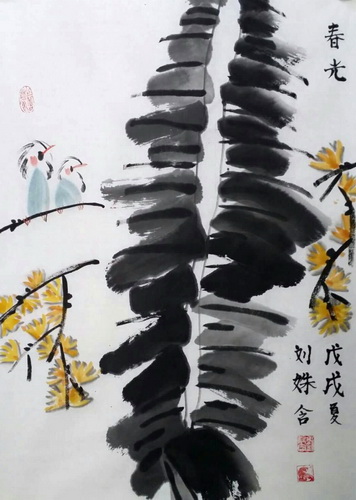 春光
戊戌夏
刘姝含